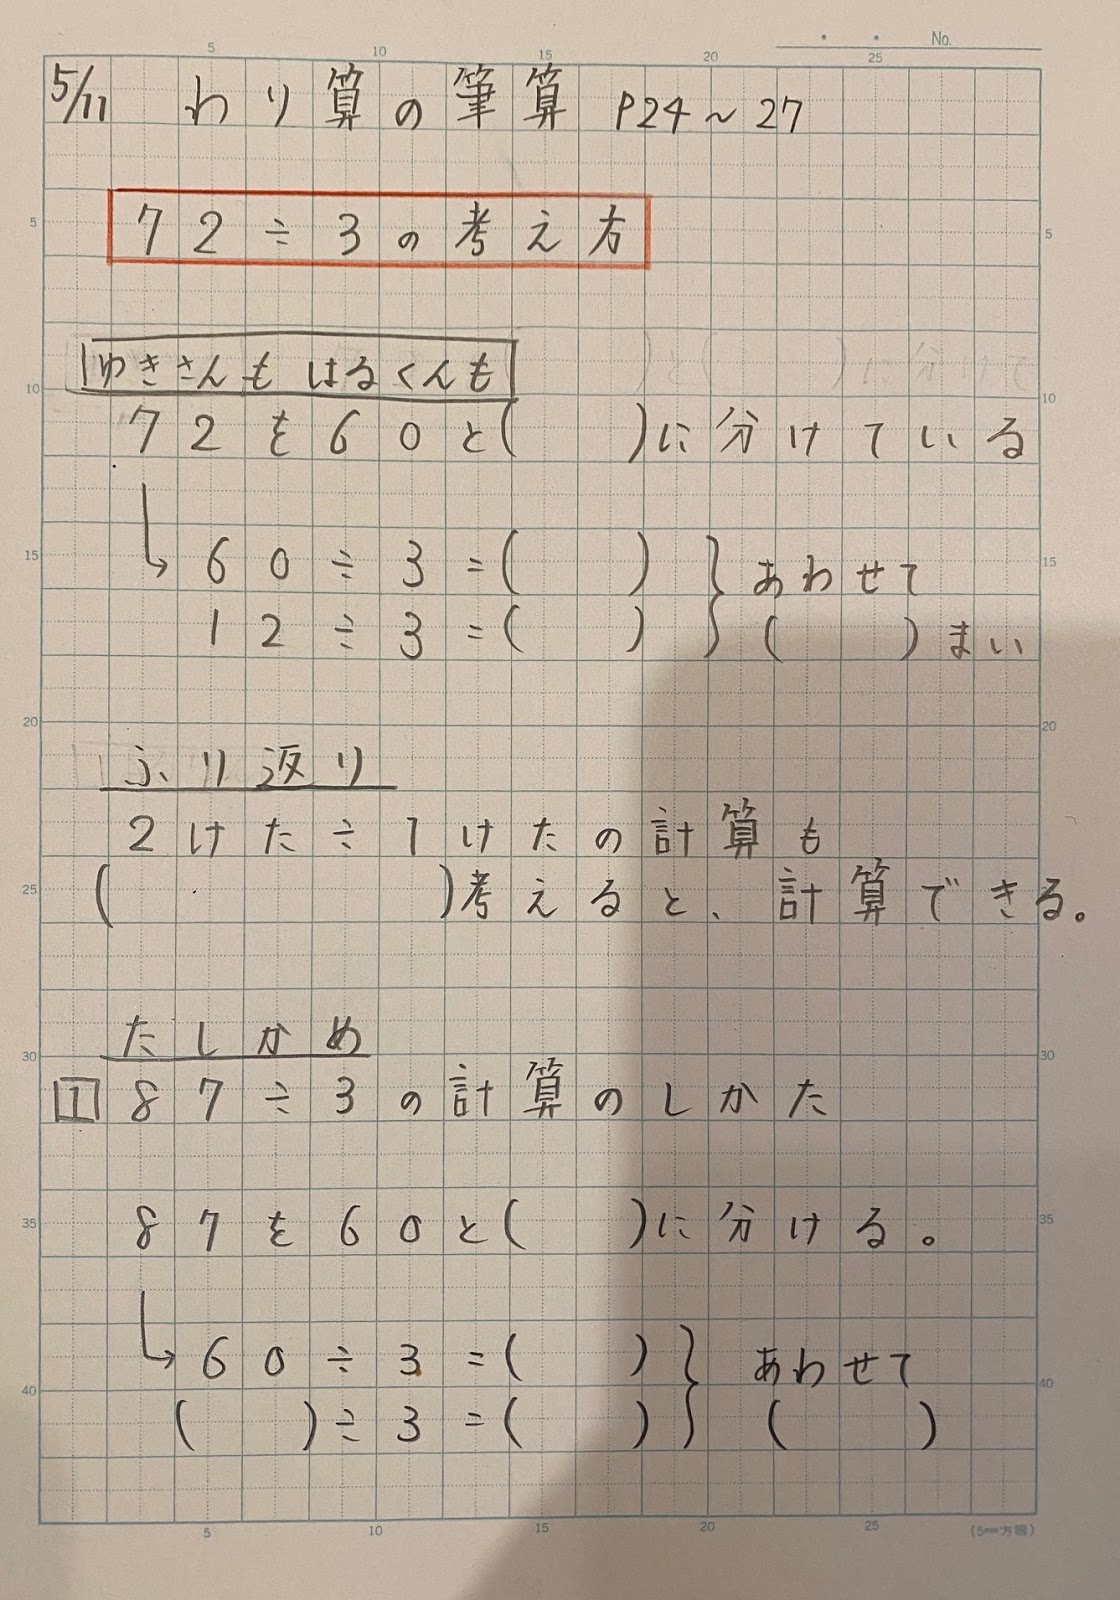 No.
5 10 15 20 25
5/11 わり算の筆算 P24～27
72÷3の考え方
5 5
ゆきさんも はるくんも
10 10
72を60と( )に分けている
15 15
60÷3=( ) あわせて
12÷3=( ) ( )まい
20 20
ふり返り
2けた÷1けたの計算も
25 25
( )考えると、計算できる。
たしかめ
30 30
1 87÷3の計算のしかた
35 35
87を60と( )に分ける。
60÷3=( ) あわせて
40 40
( )÷3=( ) ( )
5 10 15 20 25 (5mm方眼)